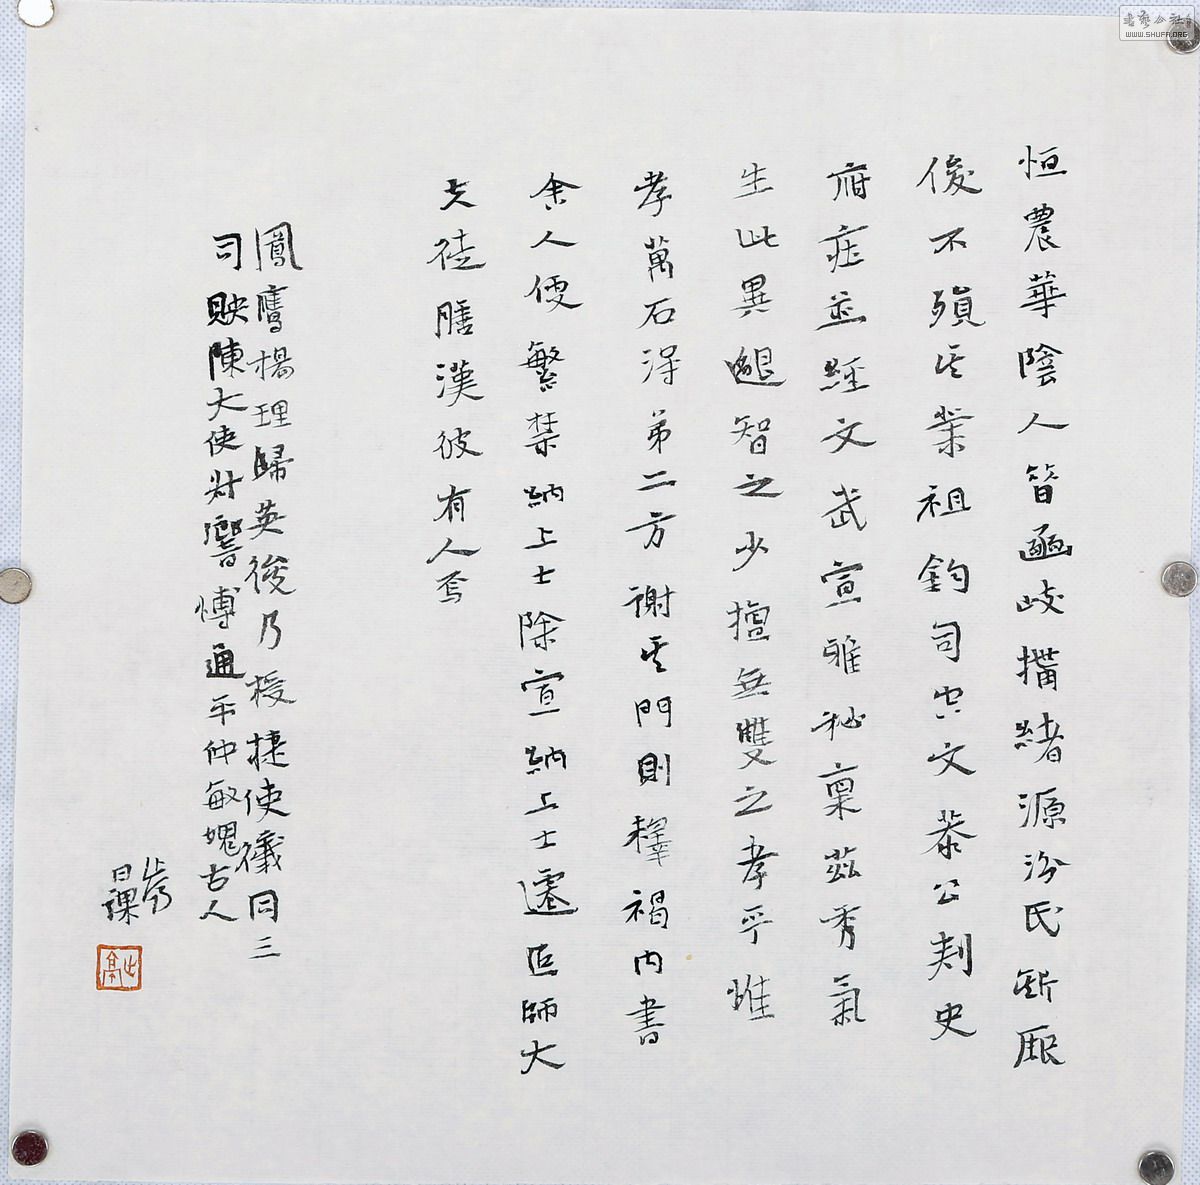 恒農華陰人昔邁岐擂緒源汾氏斯厥
後不殞其業祖鈞司空文恭公刺史
府庄並經文武宣雅秘稟茲秀氣
生此異邈智之少擅無雙之孝乎惟
孝萬石得第二方謝其門則釋褐內書
舍人便繁禁納上士除宣納上士遷匠師大
夫徒膳漢彼有人焉
鳳鷹楊理歸英後乃授捷使儀同三
司映陳大使財響博通平仲敏媿古人
日課
書艺公社
WWW.SHUFA.ORG